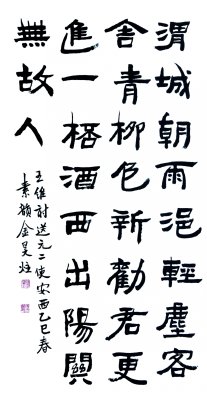 渭城朝雨浥輕塵客
舍青柳色新勸君更
進一桮酒西出陽關
無故人
王維詩送元二使安西乙巳春
金昊